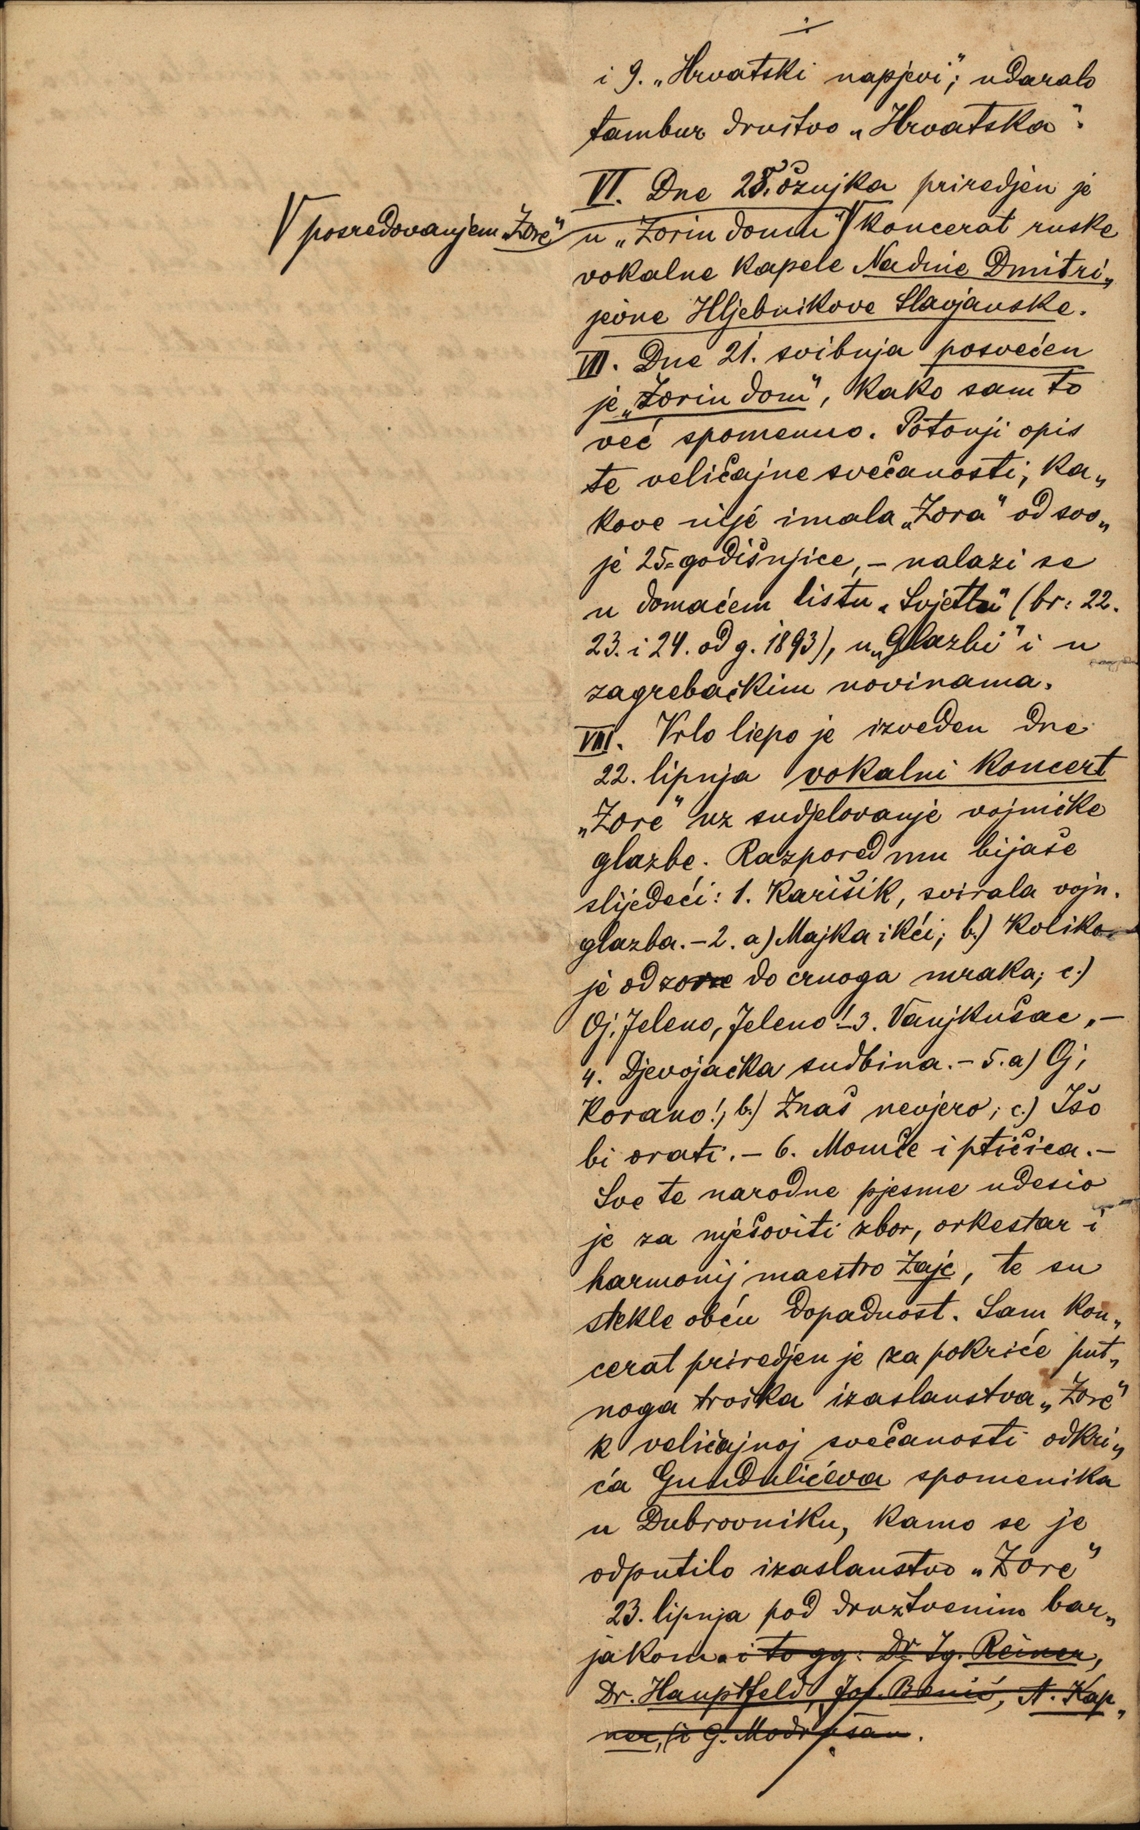 i 9. „Hrvatski napjevi“; udaralo
tambur društvo „Hrvatska“.
VI. Dne 28. ožujka priredjen je
V posredovanjem „Zore“
u „Zorin domu“ V koncerat ruske
vokalne kapele Nadine Dmitri„
jevne Hljebnikove Slavjanske.
VII. Dne 21. svibnja posvećen
je „Zorin dom“, kako sam to
već spomenuo. Potonji opis
te veličajne svečanosti; ka„
kove nije imala „Zora“ od svo„
je 25-godišnjice, – nalazi se
u domaćem listu „Svjetlu“ (br: 22.
23. i 24. od g. 1893), u „Glazbi“ i u
zagrebačkim novinama.
VIII. Vrlo liepo je izveden dne
22. lipnja vokalni koncert
„Zore“ uz sudjelovanje vojničke
glazbe. Razpored mu bijaše
slijedeći: 1. Karišik, svirala vojn.
glazba. – 2. a) Majka i kći; b.) Koliko
je od zore do crnoga mraka; c.)
Oj, Jeleno, Jeleno! – 3. Vanjkušac. –
4. Djevojačka sudbina. – 5. a) Oj,
Korano!; b.) Znaš nevjero; c.) Išo
bi orati. – 6. Momče i ptičica. –
Sve te narodne pjesme udesio
je za mješoviti zbor, orkestar i
harmonij maestro Zajc, te su
stekle obću dopadnost. Sam kon„
cerat priredjen je za pokriće put„
noga troška izaslanstva „Zore“
k veličajnoj svečanosti odkri„
ća Gundulićeva spomenika
u Dubrovniku, kamo se je
odputilo izaslanstvo „Zore“
23. lipnja pod družtvenim bar„
jakom. i to gg: Dr. Ig. Reiner,
Dr. Hauptfeld, Jos. Benić, A. Kap„
ner, (i G. Modrušan.